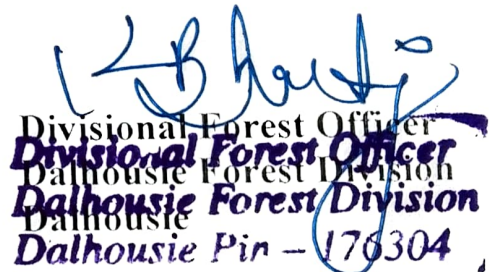 Divisional Forest Officer
Divisional Forest Officer
Dalhousie Forest Division
Dalhousie Forest Division
Dalhousie
Dalhousie Pin - 176304